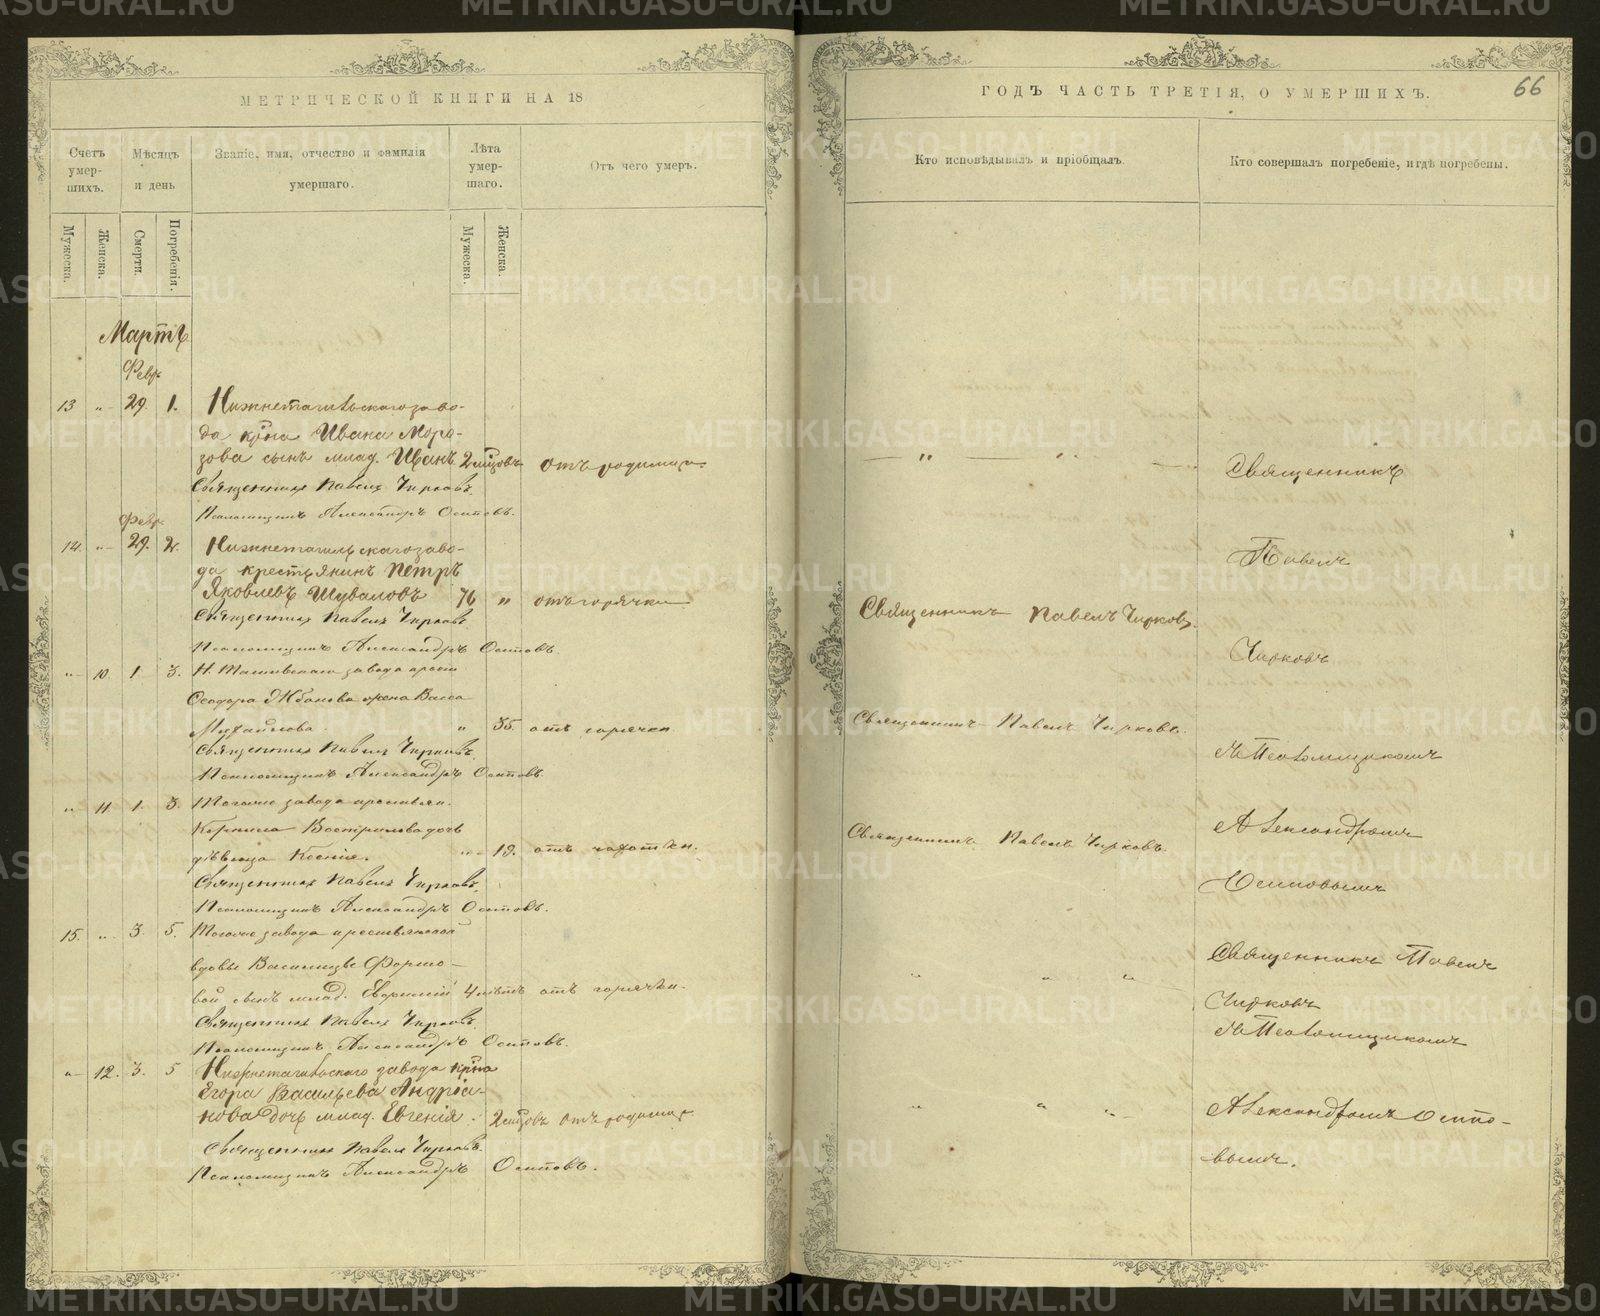 МЕТРИЧЕСКОЙ КНИГИ НА 18
Счетъ умер-шихъ.
Мѣсяцъ и день
Званіе, имя, отчество и фамилія умершаго.
Лѣта умер-шаго.
Отъ чего умеръ.
Мужеска.
Женска.
Смерти.
Погребенія.
Мужеска.
Женска.
Мартъ
Февр.
13 „ 29. 1. Нижнетагильскаго заво-
да кр̃на Ивана Моро-
зова сынъ млад. Иванъ 2 мцовъ отъ родимца
Священникъ Павелъ Чирковъ.
Псаломщикъ Александръ Осиповъ.
Февр.
14. „ 29. 2. Нижнетагильскаго заво-
да крестьянинъ Петръ
Яковлевъ Шуваловъ 76 „ отъ горячки
Священникъ Павелъ Чирковъ
Псаломщикъ Александръ Осиповъ.
„ 10. 1 3. Н. Тагильскаго завода крест
Ѳеодора Жбанова жена Васса
Михайлова. „ 35. отъ горячки
Священникъ Павелъ Чирковъ.
Псаломщикъ Александръ Осиповъ.
„ 11. 1. 3. Тогоже завода крестьян.
дочь
дѣвица Ксенія. „ 19. отъ чахотки.
Священникъ Павелъ Чирковъ.
Псаломщикъ Александръ Осиповъ.
15. „ 3. 5. Тогоже завода крестьянской
вдовы Василисы
вой сынъ млад. 4 лѣтъ отъ горячки.
Священникъ Павелъ Чирковъ.
Псаломщикъ Александръ Осиповъ.
„ 12. 3. 5 Нижнетагильскаго завода кр̃на
Егора Васильева Андріа-
нова дочь млад. Евгенія. 2 мцовъ отъ родимца
Священникъ Павелъ Чирковъ.
Псаломщикъ Александръ Осиповъ.
ГОДЪ ЧАСТЬ ТРЕТІЯ, О УМЕРШИХЪ.
66
Кто исповѣдывалъ и пріобщалъ.
Кто совершалъ погребеніе, и гдѣ погребены.
„ „ Священникъ
Павелъ
Священникъ Павелъ Чирковъ.
Чирковъ
Священникъ Павелъ Чирковъ.
съ Псаломщикомъ
Александромъ
Священникъ Павелъ Чирковъ.
Осиповымъ
Священникъ Павелъ
„ „ „
Чирковъ
съ Псаломщикомъ
„ „ „ Александромъ Осипо-
вымъ.
METRIKI.GASO-URAL.RU